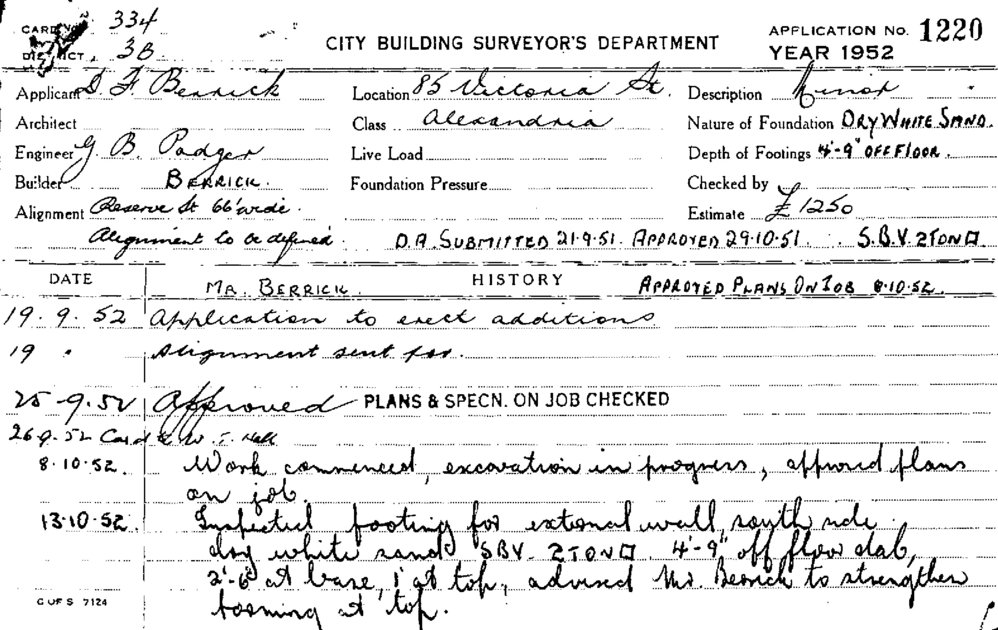 CARD No. 334
DISTRICT. 3B
CITY BUILDING SURVEYOR'S DEPARTMENT
APPLICATION No. 1220
YEAR 1952
Applicant D. F. Berrick Location 85 Victoria St. Description Minor
Architect Class Alexandria Nature of Foundation DRY WHITE SAND.
Engineer G B. Padger Live Load Depth of Footings 4'-9" OFF FLOOR.
Builder BERRICK. Foundation Pressure Checked by
Alignment Reserve St 66' wide. Estimate £ 1250
Alignment to be defined. D.A. SUBMITTED 21-9-51. APPROVED 29-10-51. S.B.V. 2 TON □
DATE MR. BERRICK. HISTORY APPROVED PLANS ON JOB 8-10-52.
19. 9. 52 Application to erect additions
19 " Alignment sent for.
25-9-52 Approved PLANS & SPECN. ON JOB CHECKED
26-9-52 Card to W. Hall
8.10.52. Work commenced, excavation in progress, approved plans
on job.
13.10.52. Inspected footing for external wall, south side.
dry white sand SBV. 2 TON □ 4'-9" off floor slab,
2'-6" at base, 1' at top, advised Mr. Berrick to strengthen
at top.
7124